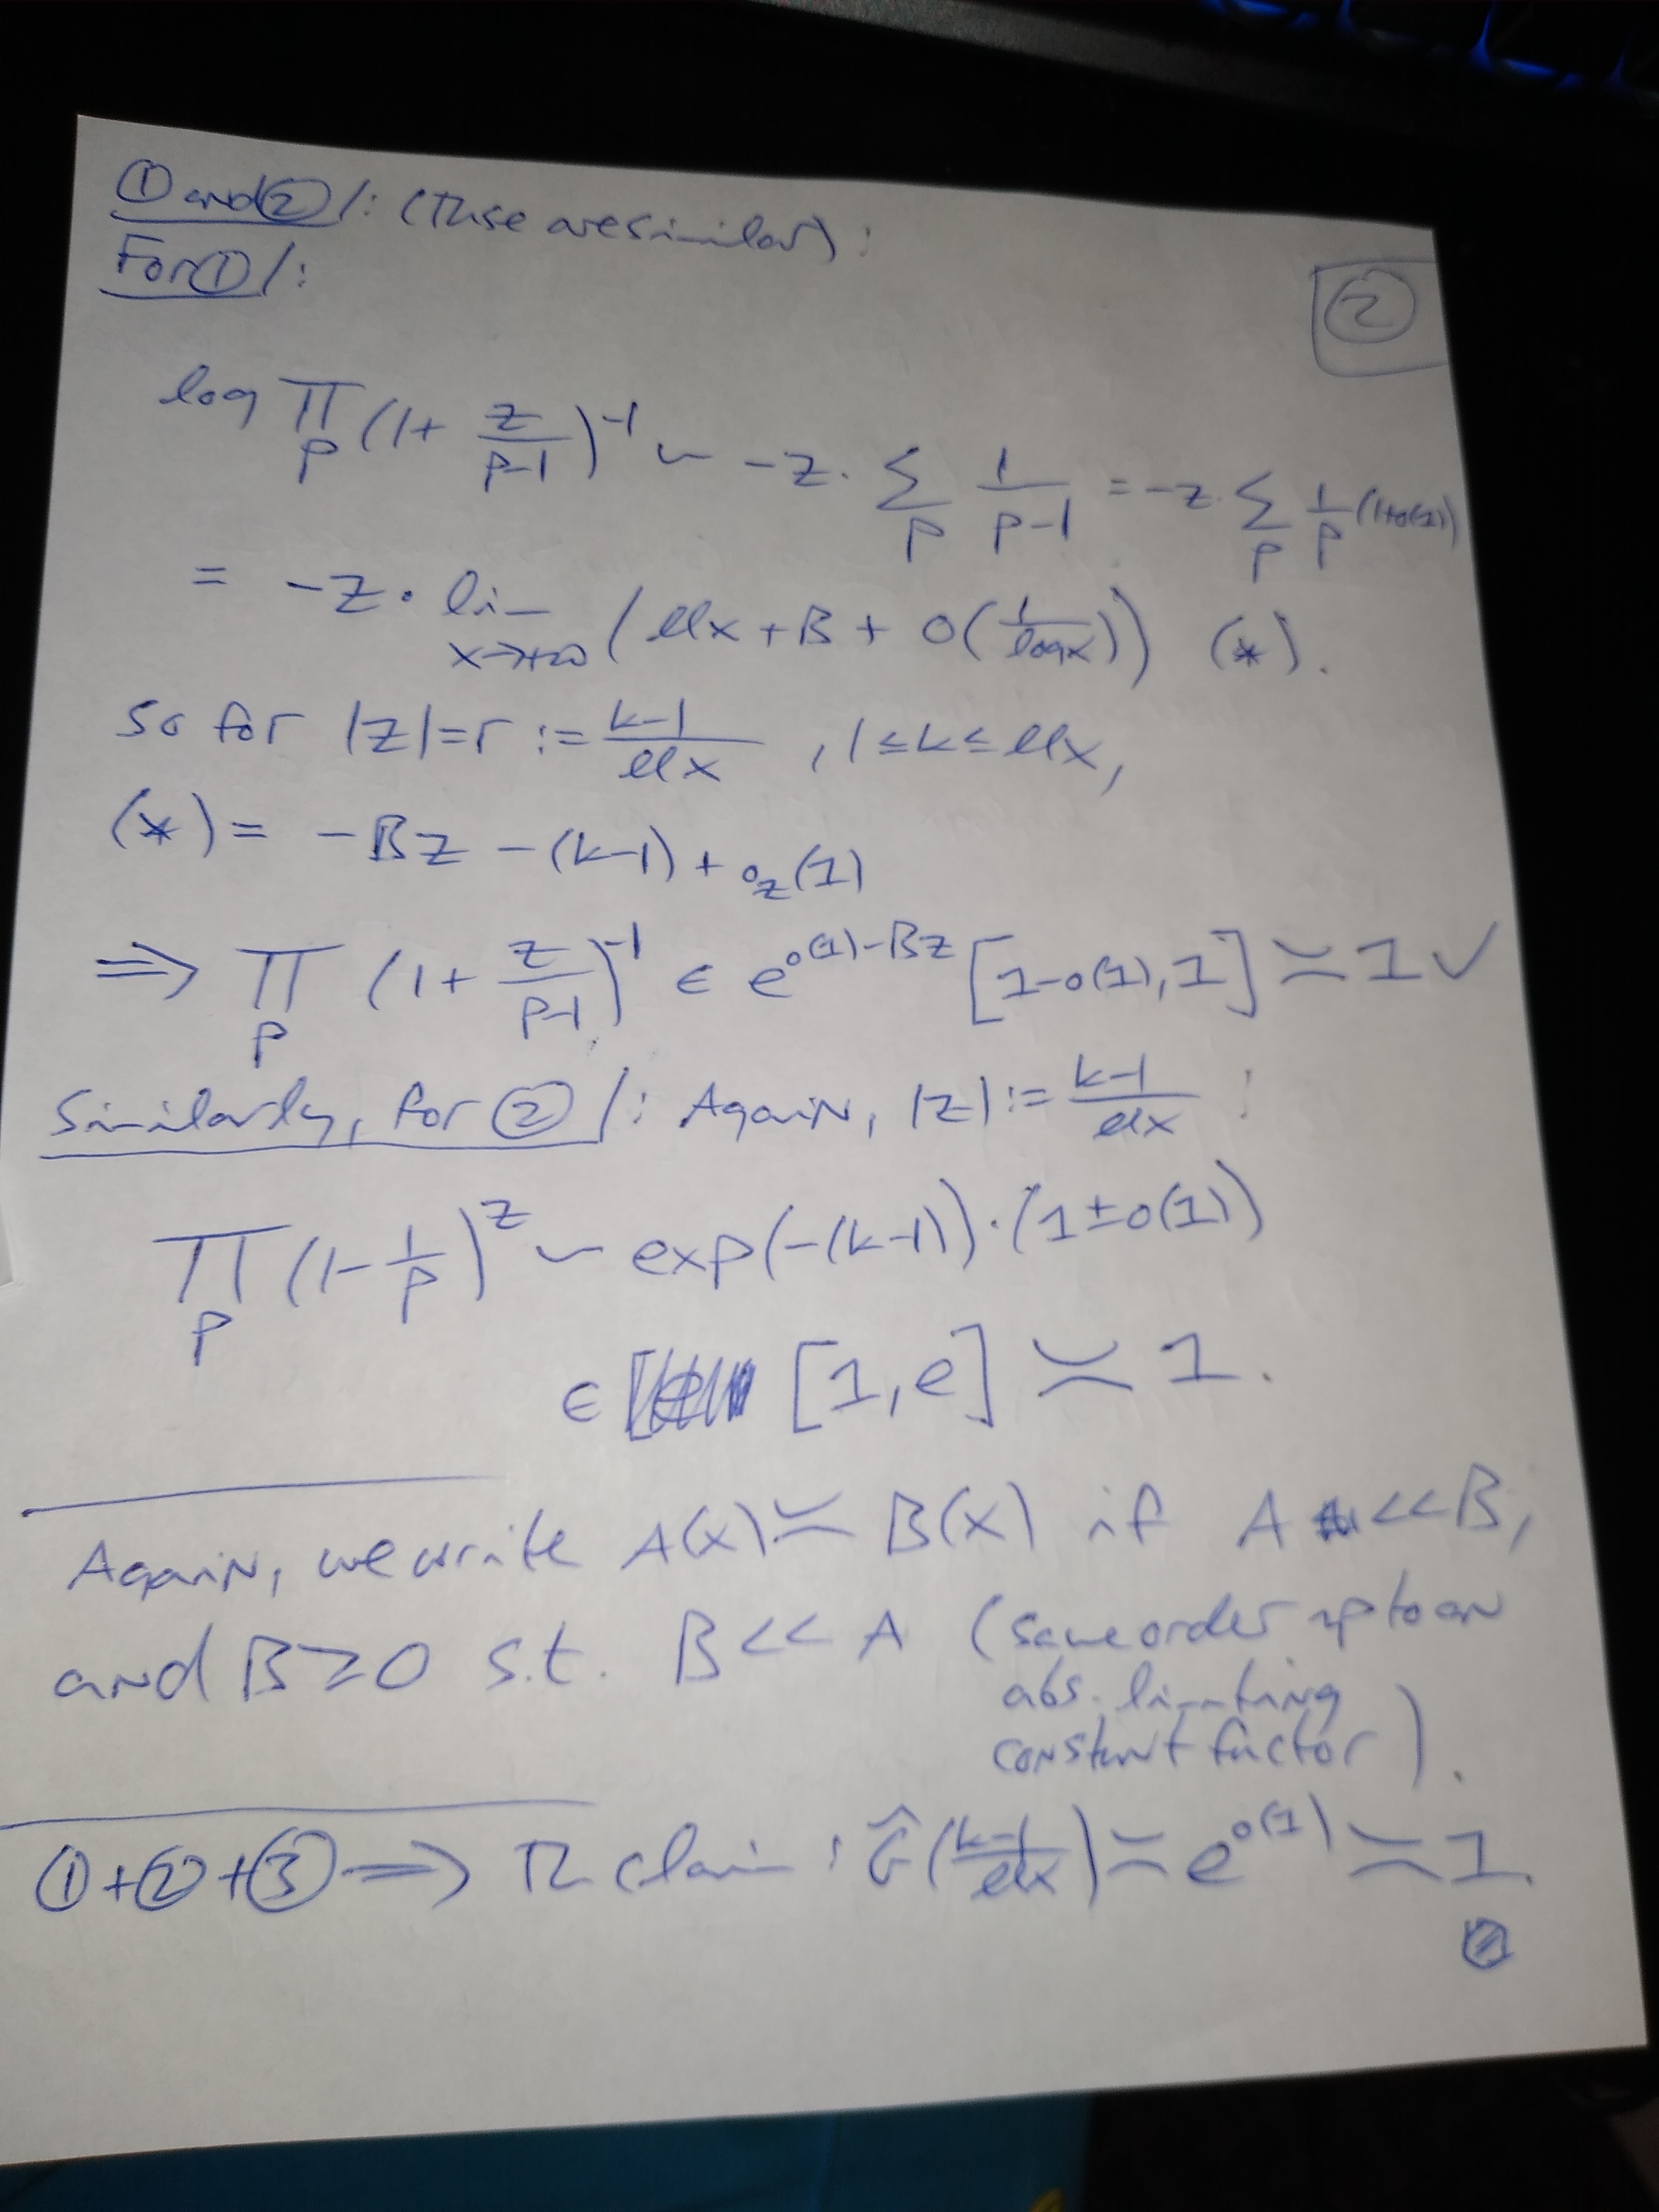 ① and ②/: (These are similar):
For ①/:
②
log ∏_p (1 + z/(p-1))^{-1} ~ -z · ∑_p 1/(p-1) = -z · ∑_p 1/p (1+o(1))
= -z · lim_{x→+∞} (llx + B + O(1/logx)) (*).
so for |z|=r := (k-1)/llx , 1≤k≤llx,
(*) = -Bz - (k-1) + o_z(1)
⇒ ∏_p (1 + z/(p-1))^{-1} ∈ e^{o(1)-Bz} [1-o(1), 1] ≍ 1 ✓
Similarly, for ②/: Again, |z| := (k-1)/llx :
∏_p (1 - 1/p)^z ~ exp(-(k-1)) · (1±o(1))
∈ [1, e] ≍ 1.
Again, we write A(x) ≍ B(x) if A << B,
and B≥0 s.t. B << A (same order up to an
abs. limiting
constant factor).
①+②+③ ⇒ The claim: Ĝ((k-1)/llx) ≍ e^{o(1)} ≍ 1.